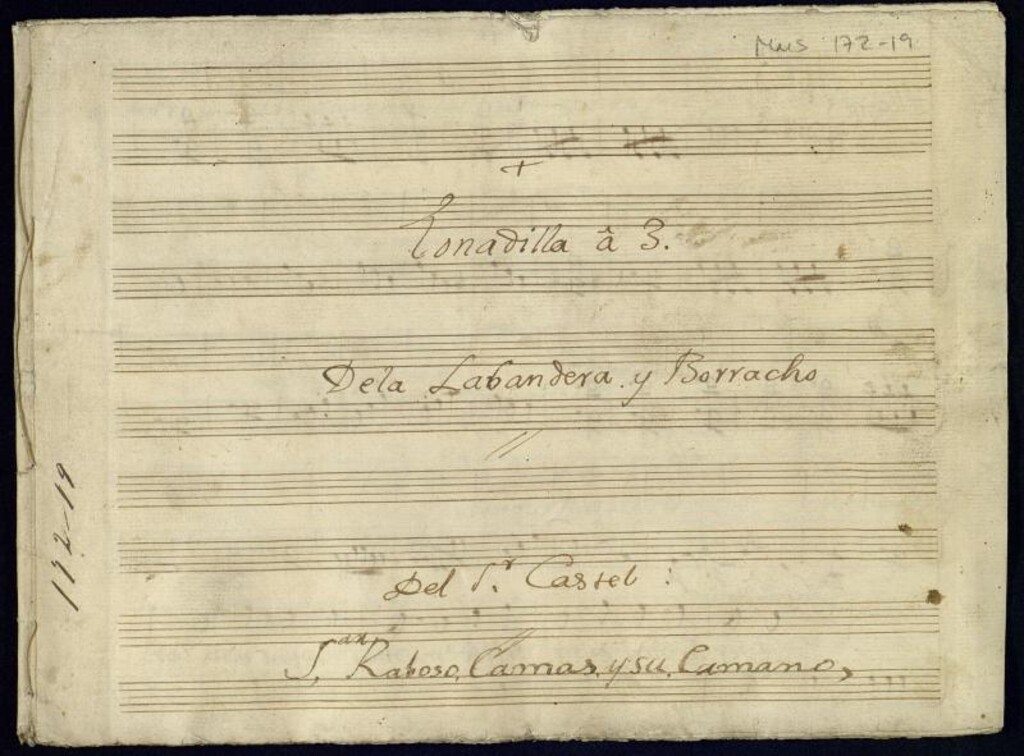 Mus 172-19
+
Tonadilla â 3.
Dela Labandera y Borracho
//
Del S.r Castel:
S.an Raboso, Camas, y su Camano,
172-19